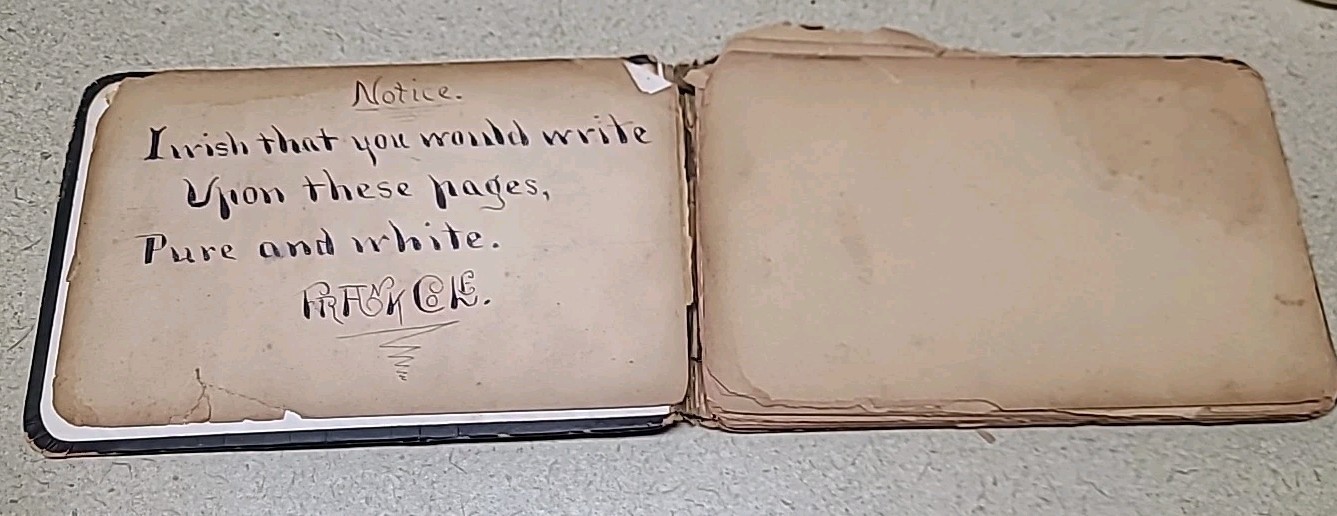 Notice.
I wish that you would write
Upon these pages,
Pure and white.
FRANK COLE.